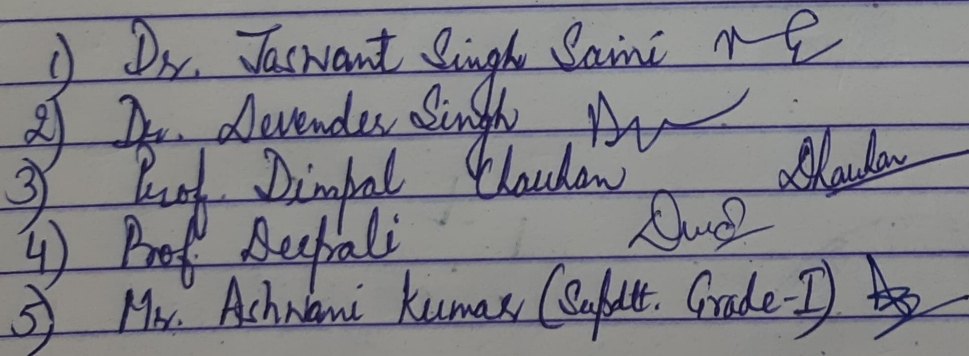 1) Dr. Jaswant Singh Saini
2) Dr. Devender Singh
3) Prof. Dimpal Chauhan DChauhan
4) Prof. Deepali
5) Mr. Ashwani Kumar (Supdtt. Grade-I)